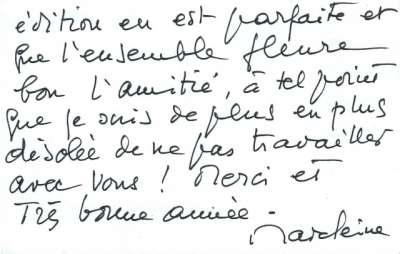 édition en est parfaite et
que l'ensemble fleure
bon l'amitié, à tel point
que je suis de plus en plus
désolée de ne pas travailler
avec vous ! Merci et
Très bonne année.
Madeleine